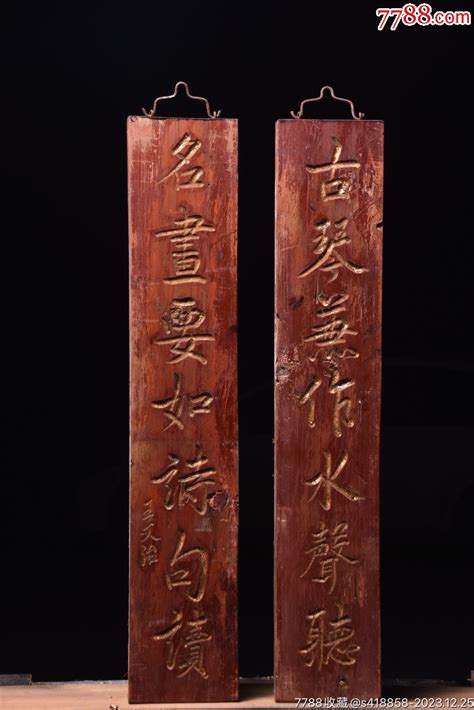 7788.com
古琴兼作水聲聽
名畫要如詩句讀
王文治
7788收藏@s418858-2023.12.25